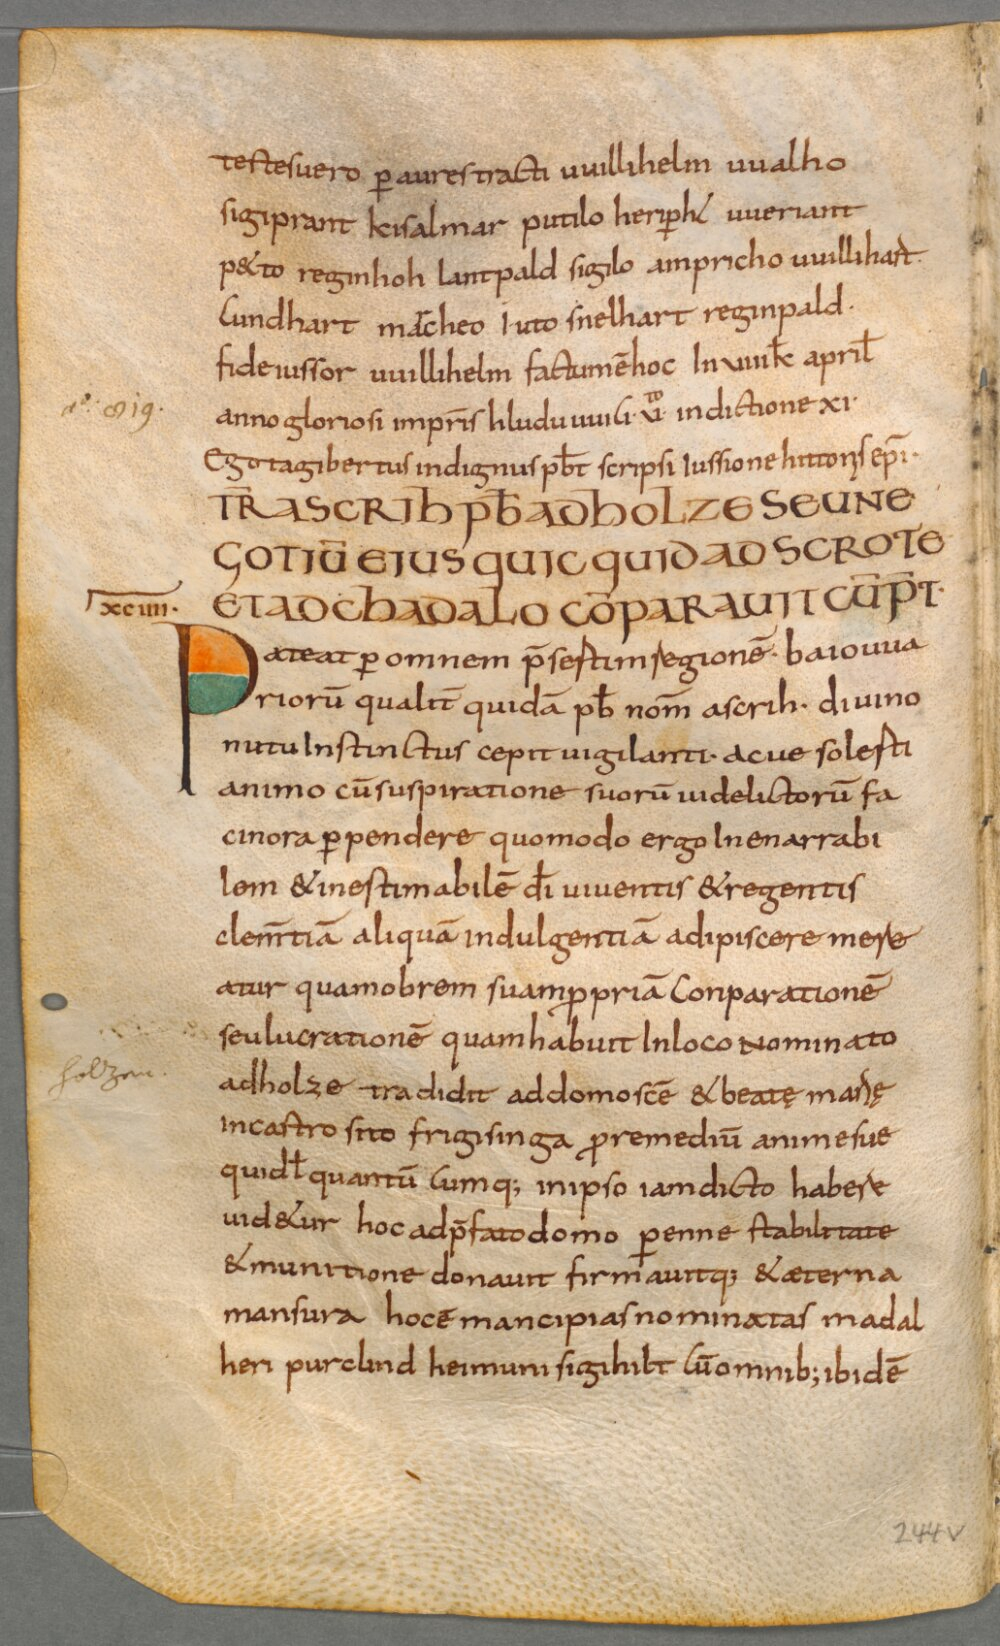 testesuero p̱ aures tracti uuillihelm uualho
sigiprant kisalmar putilo herip̱ht uueriant
p&to reginhoh lantpald sigilo ampricho uuillihart.
Cundhart mācheo Iuto snelhart reginpald.
fideiussor uuillihelm factumē hoc In uiiii kƚ apriƚ
a°: 819.
anno gloriosi imprīs hluduuuici. ui.to indictione xi.
Ego tagibertus indignus pb̄t scripsi Iussione hittonis ep̄i.
TR̄ASCRIH PB̄ ADHOLZE SEUNE
GOTIŪ EIUS QUICQUID AD SCROTE
xciiii.
ET AD CHADALO CŌPARAUIT CŪ P̄T.
Pateat p̱ omnem p̄sestim regionē. baiouua
riorū qualit̄ quidā pb̄ nom̄ ascrih. diuino
nutu Instinctus cepit uigilanti. acue solesti
animo cū suspiratione suorū uidelictorū fa
cinora p̱pendere quomodo ergo Inenarrabi
lem & inestimabilē dī uiuentis & regentis
clem̄tiā aliquā indulgentiā adipiscere mere
atur quamobrem suam p̱priā Conparationē
seu lucrationē quam habuit In loco Nominato
holzen.
adholze tradidit ad domo scē & beatę marię
in castro sito frigisinga p̱ remediū anime sue
quidƚ quantū Cumq; in ipso iamdicto habere
uid&ur hoc ad p̄fato domo p̱enne stabilitate
& munitione donauit firmauitq; & æterna
mansura hoc ē mancipias nominatas madal
heri purclind heimuni sigihilt Cū omnib; ibidē
244v